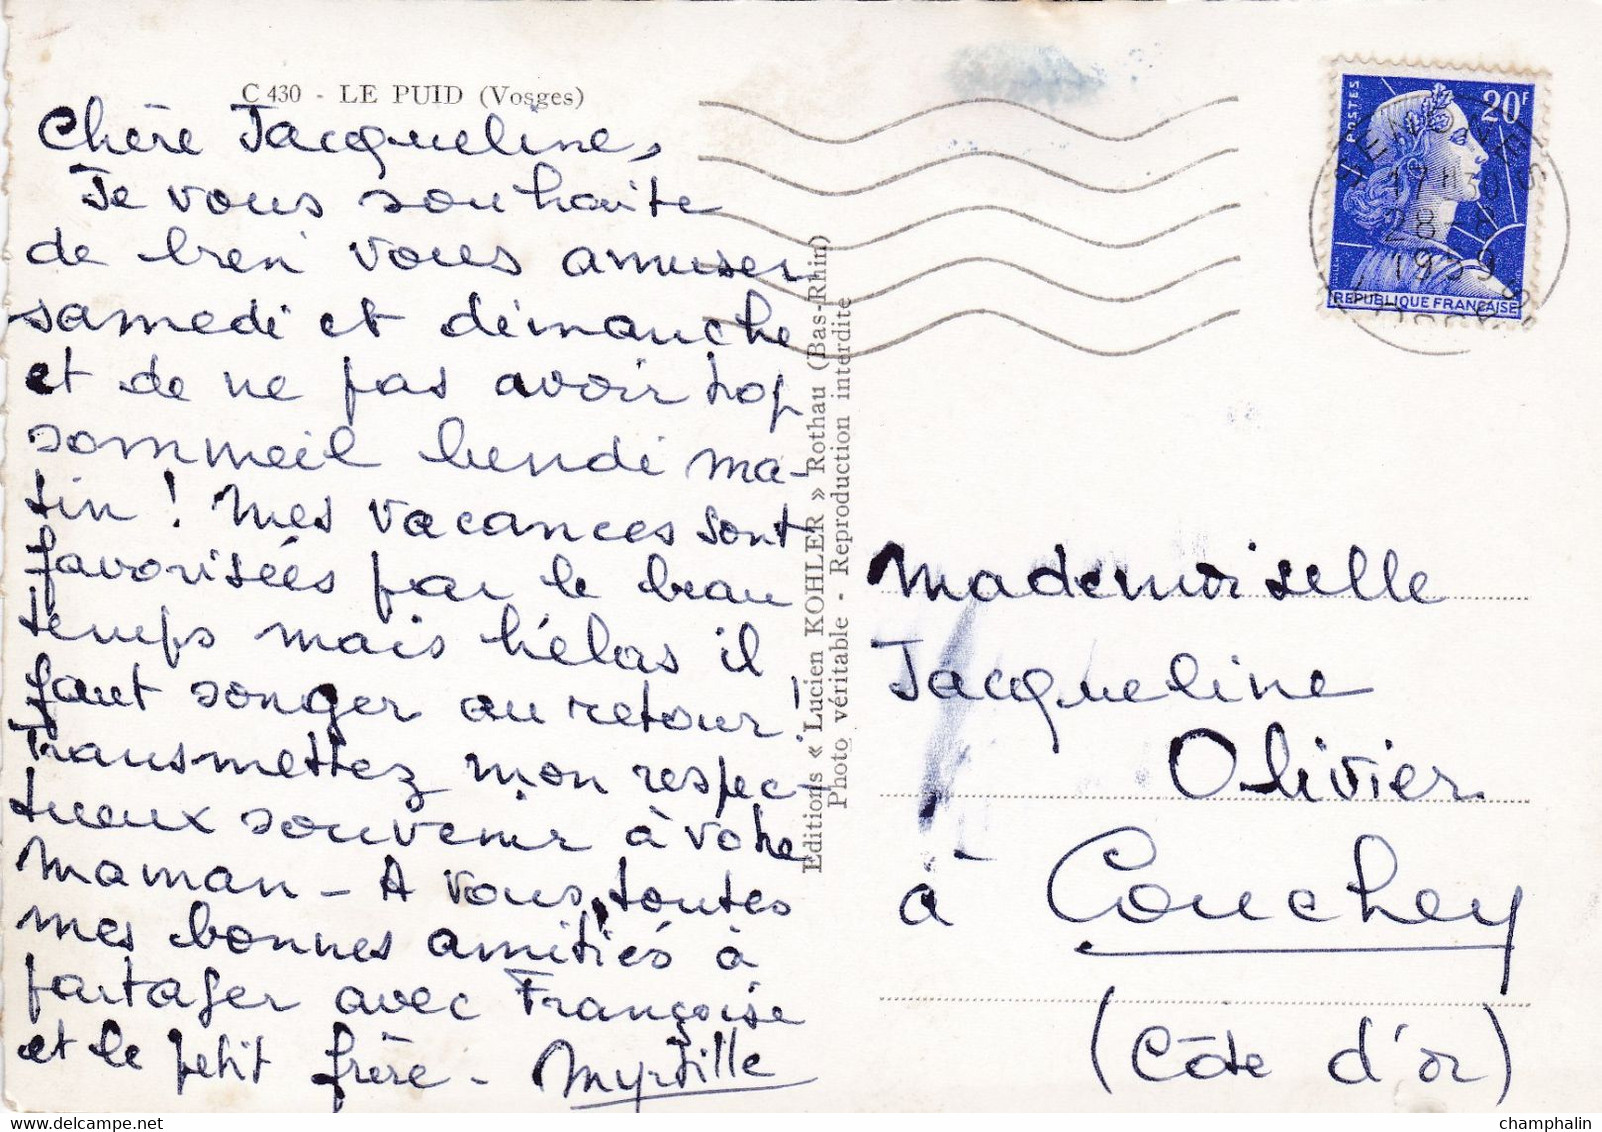 C 430 - LE PUID (Vosges)
Chère Jacqueline,
Je vous souhaite
de bien vous amuser
samedi et dimanche
et de ne pas avoir trop
sommeil lundi ma-
tin ! Mes vacances sont
favorisées par le beau
temps mais hélas il
faut songer au retour !
Transmettez mon respec-
tueux souvenir à votre
maman - A vous, toutes
mes bonnes amitiés à
partager avec Françoise
et le petit frère - Myrtille
Editions « Lucien KOHLER » Rothau (Bas-Rhin)
Photo véritable - Reproduction interdite
POSTES
20F
REPUBLIQUE FRANÇAISE
SENONES
17H30
28-8
1959
VOSGES
Mademoiselle
Jacqueline
Olivier
à Couchey
(Côte d'or)
champhalin